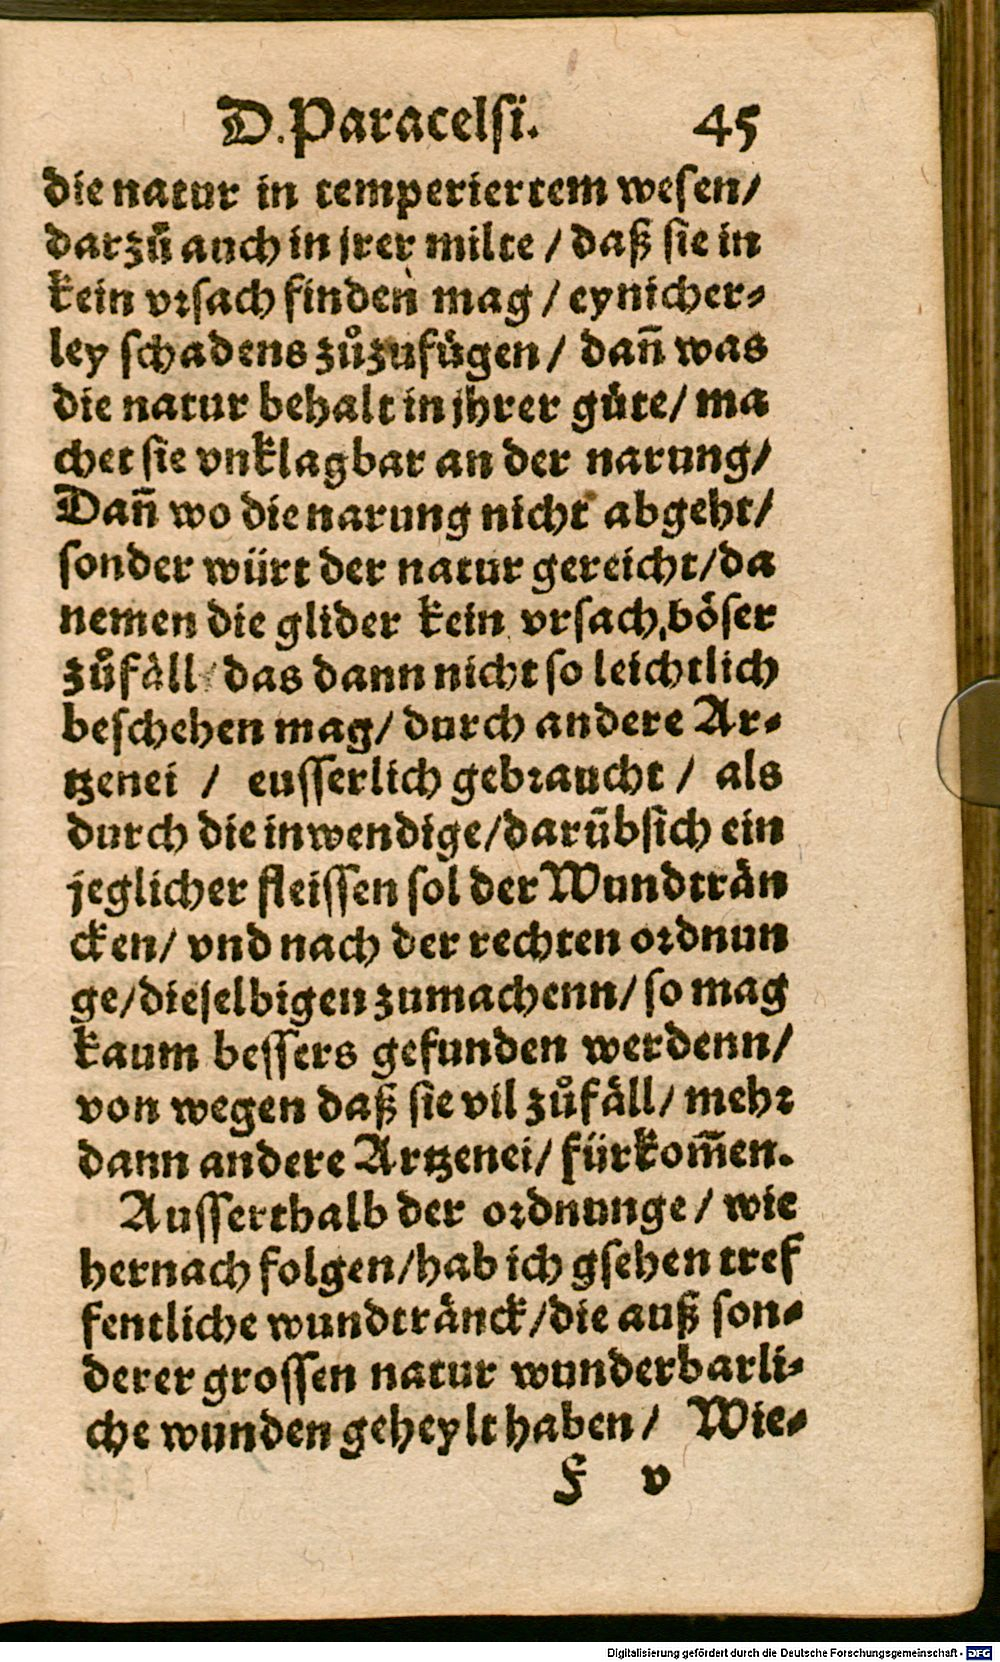 D. Paracelsi. 45
die natur in temperiertem wesen/
darzů auch in jrer milte / daß sie in
kein vrsach finden mag / eynicher-
ley schadens zůzufügen / dañ was
die natur behalt in jhrer güte/ ma
chet sie vnklagbar an der narung/
Dañ wo die narung nicht abgeht/
sonder würt der natur gereicht/da
nemen die glider kein vrsach, böser
zůfäll / das dann nicht so leichtlich
beschehen mag/ durch andere Ar-
tzenei / eusserlich gebraucht / als
durch die inwendige/darübsich ein
jeglicher fleissen sol der Wundträn
cken/ vnd nach der rechten ordnun
ge/dieselbigen zumachenn/ so mag
kaum bessers gefunden werdenn/
von wegen daß sie vil zůfäll/ mehr
dann andere Artzenei/ fürkom̃en.
Ausserthalb der ordnunge/ wie
hernach folgen/hab ich gsehen tref
fentliche wundtränck/die auß son-
derer grossen natur wunderbarli-
che wunden geheylt haben/ Wie-
F v
Digitalisierung gefördert durch die Deutsche Forschungsgemeinschaft - DFG